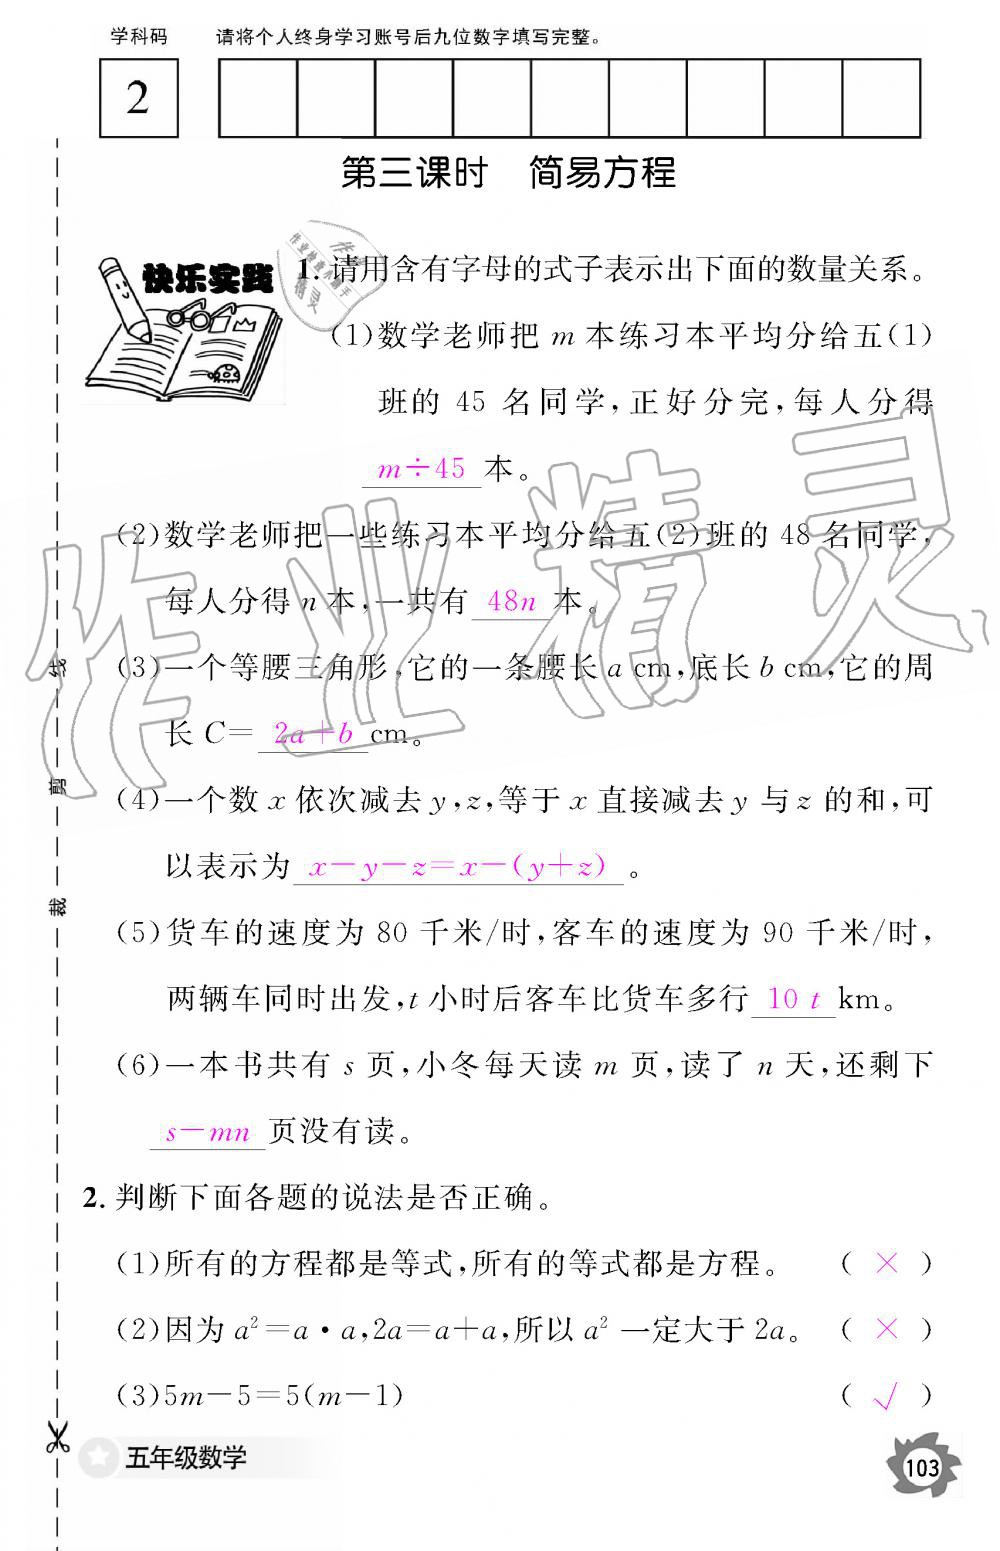 学科码 请将个人终身学习账号后九位数字填写完整。
2
第三课时 简易方程
快乐实践
1. 请用含有字母的式子表示出下面的数量关系。
(1)数学老师把 m 本练习本平均分给五(1)
班的 45 名同学,正好分完,每人分得
m÷45 本。
(2)数学老师把一些练习本平均分给五(2)班的 48 名同学,
每人分得 n 本,一共有 48n 本。
(3)一个等腰三角形,它的一条腰长 a cm,底长 b cm,它的周
长 C= 2a+b cm。
(4)一个数 x 依次减去 y,z,等于 x 直接减去 y 与 z 的和,可
以表示为 x-y-z=x-(y+z) 。
(5)货车的速度为 80 千米/时,客车的速度为 90 千米/时,
两辆车同时出发,t 小时后客车比货车多行 10 t km。
(6)一本书共有 s 页,小冬每天读 m 页,读了 n 天,还剩下
s-mn 页没有读。
2. 判断下面各题的说法是否正确。
(1)所有的方程都是等式,所有的等式都是方程。 ( × )
(2)因为 a²=a·a,2a=a+a,所以 a² 一定大于 2a。 ( × )
(3)5m-5=5(m-1) ( √ )
五年级数学
103
线
剪
裁
作业精灵
作业检查小助手
作业
精灵